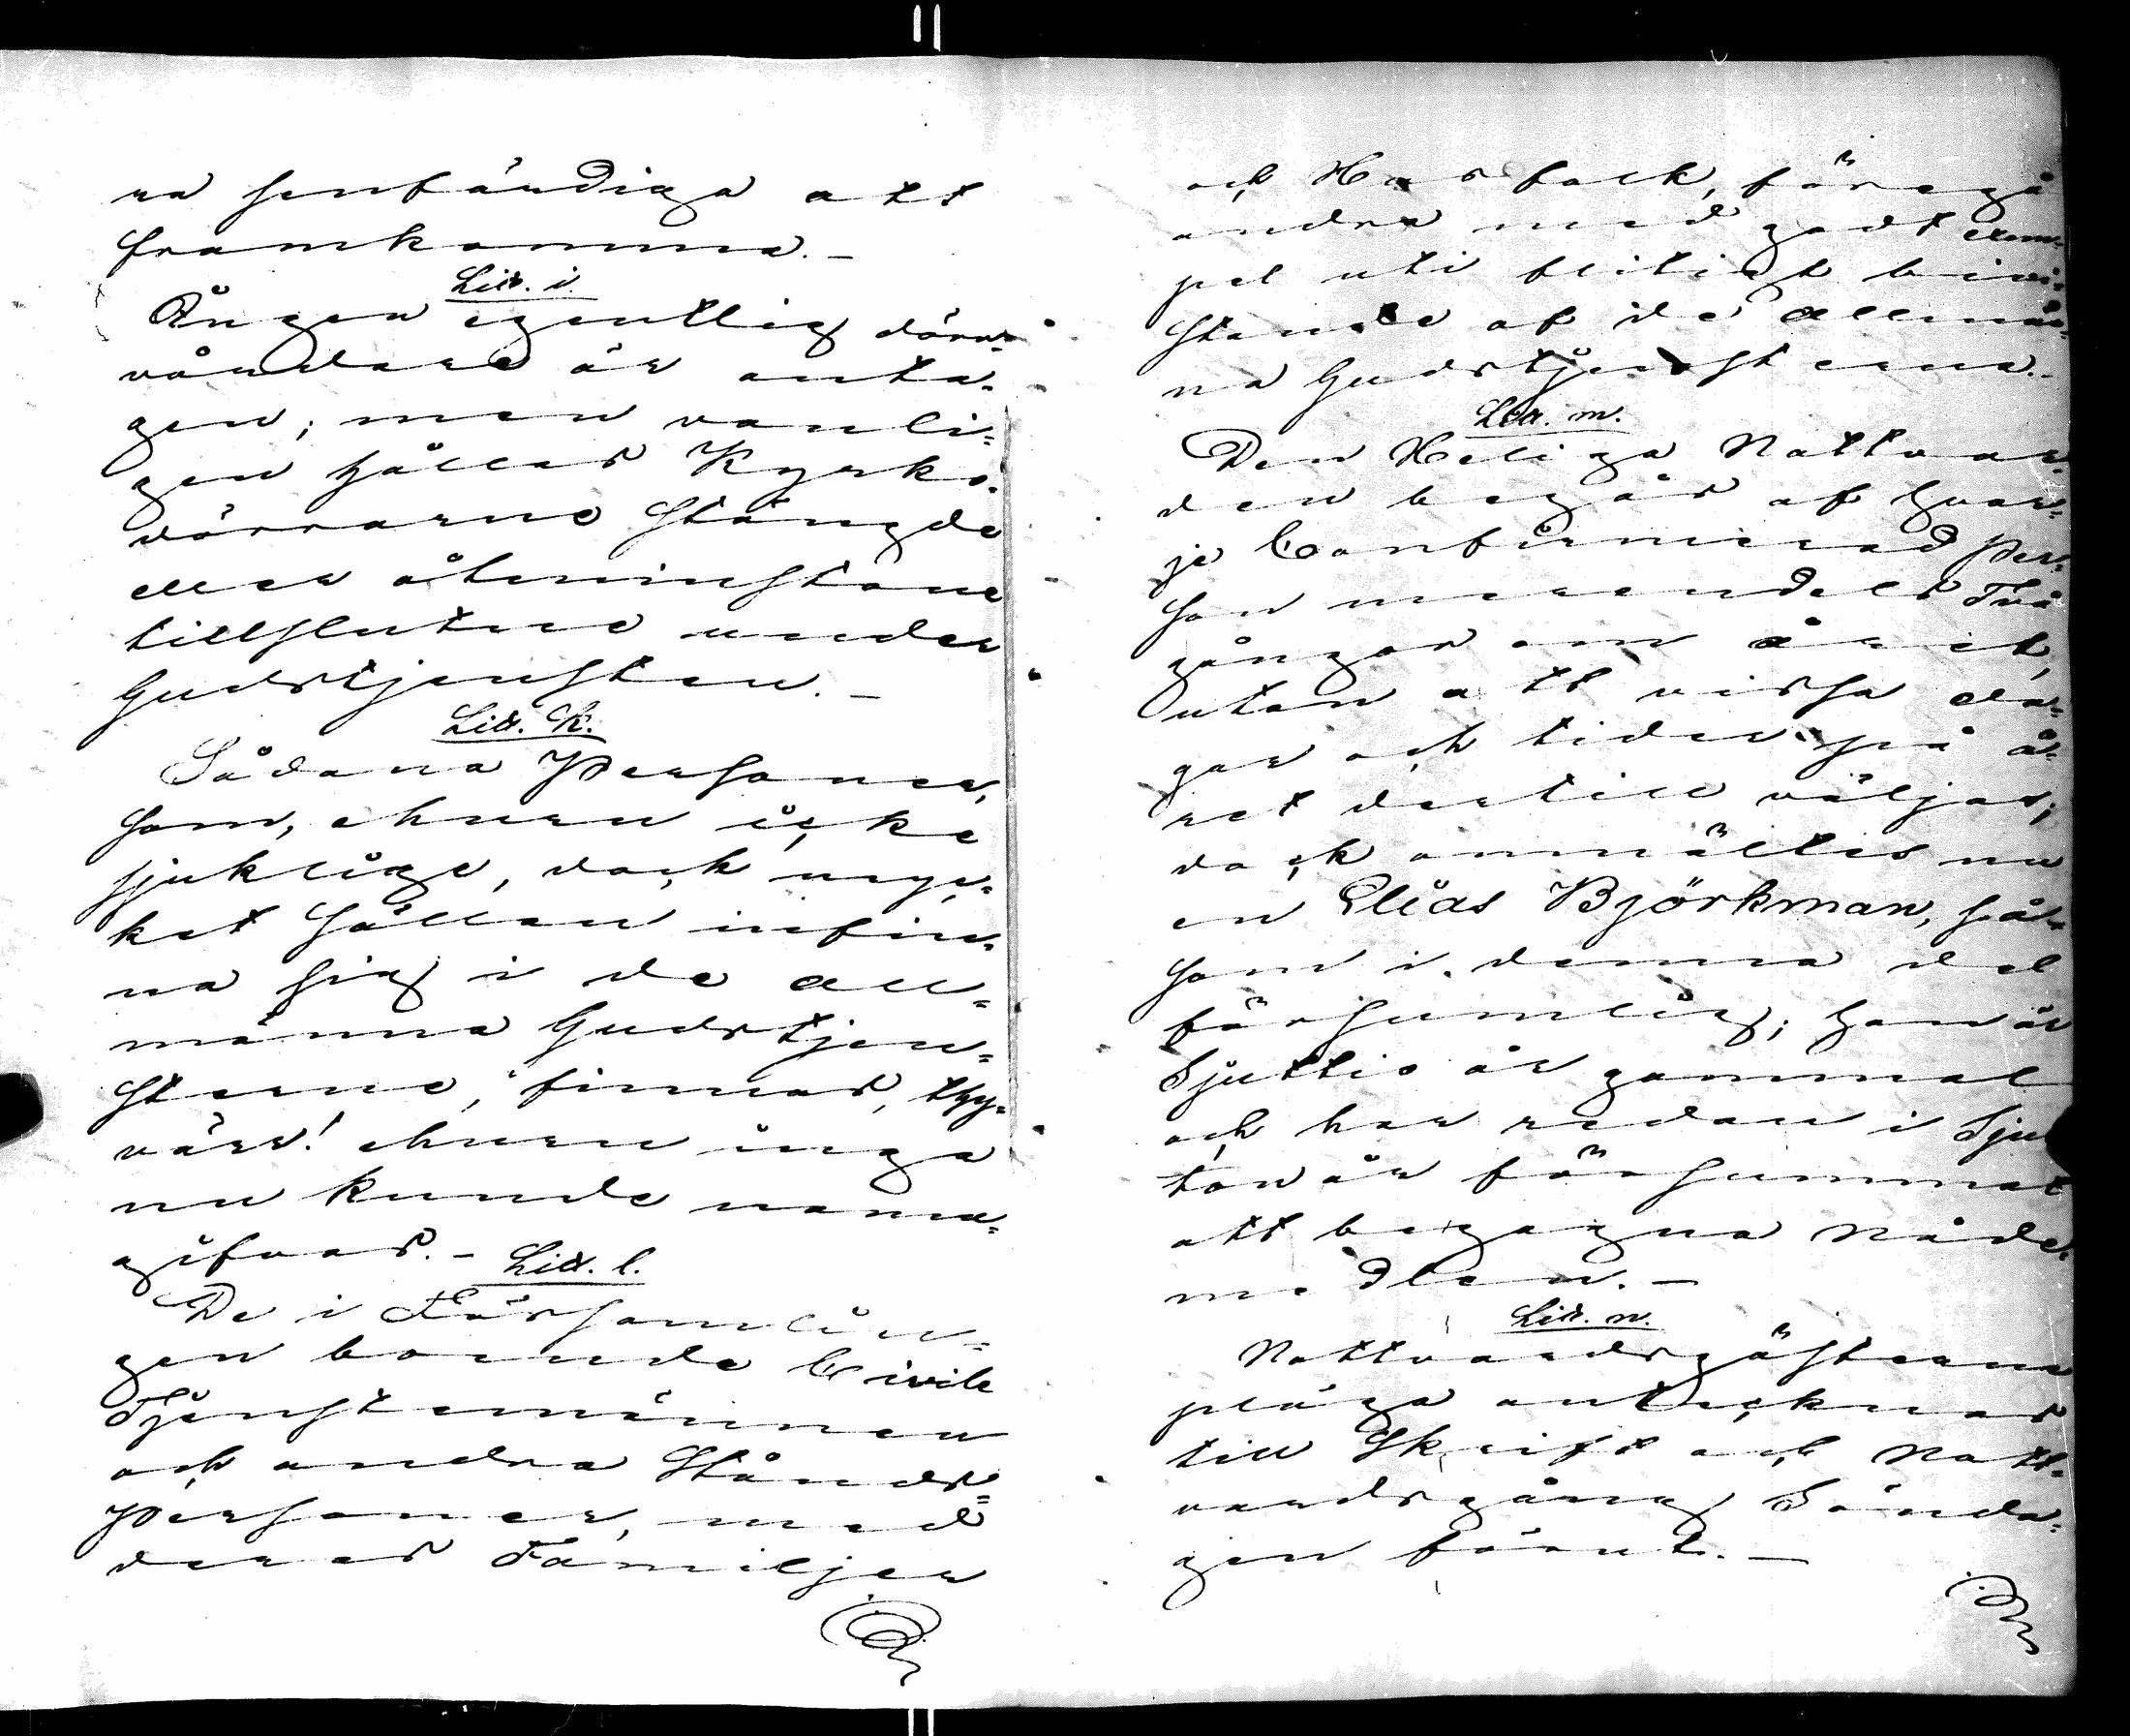 na senfärdiga att
framkomma. -
Litt. i.
Ingen egentlig dörr-
väcktare är anta-
gen; men vanli-
gen hållas Kyrko-
dörrarne stängde
eller åtminstone
tillslutne under
Gudstjensten. -
Litt. k.
Sådana Personer,
som, ehuru icke
sjuklige, dock myc-
ket sällan infin-
na sig i de all-
männa Gudstjen-
sterne, finnas, thy-
värr! ehuru inga
nu kunde namn-
gifvas. -
Litt. l.
De i Församlin-
gen boende Civile
Tjenstemännen
och andra Stånds-
personer, med
deras Familjer
och Husfolk, föregå
andra med godt exem-
pel uti flitigt bevi-
stande af de allmän-
na Gudstjensterna. -
Litt. m.
Den Heliga Nattvar-
den begås af hvar-
je Confirmerad Per-
son merendels Två
gånger om året,
utan att vissa da-
gar och tider på å-
ret dertill väljas;
dock anmältes nu
en Elias Björkman, så-
som i denna del
försumlig; han är
Sjuttio år gammal
och har redan i Sju
ton år försummat
att begagna Nåde-
medlen. -
Litt. n.
Nattvardsgästerne
pläga antecknas
till Skrift och Natt-
vardsgång Sönda-
gen förut. -